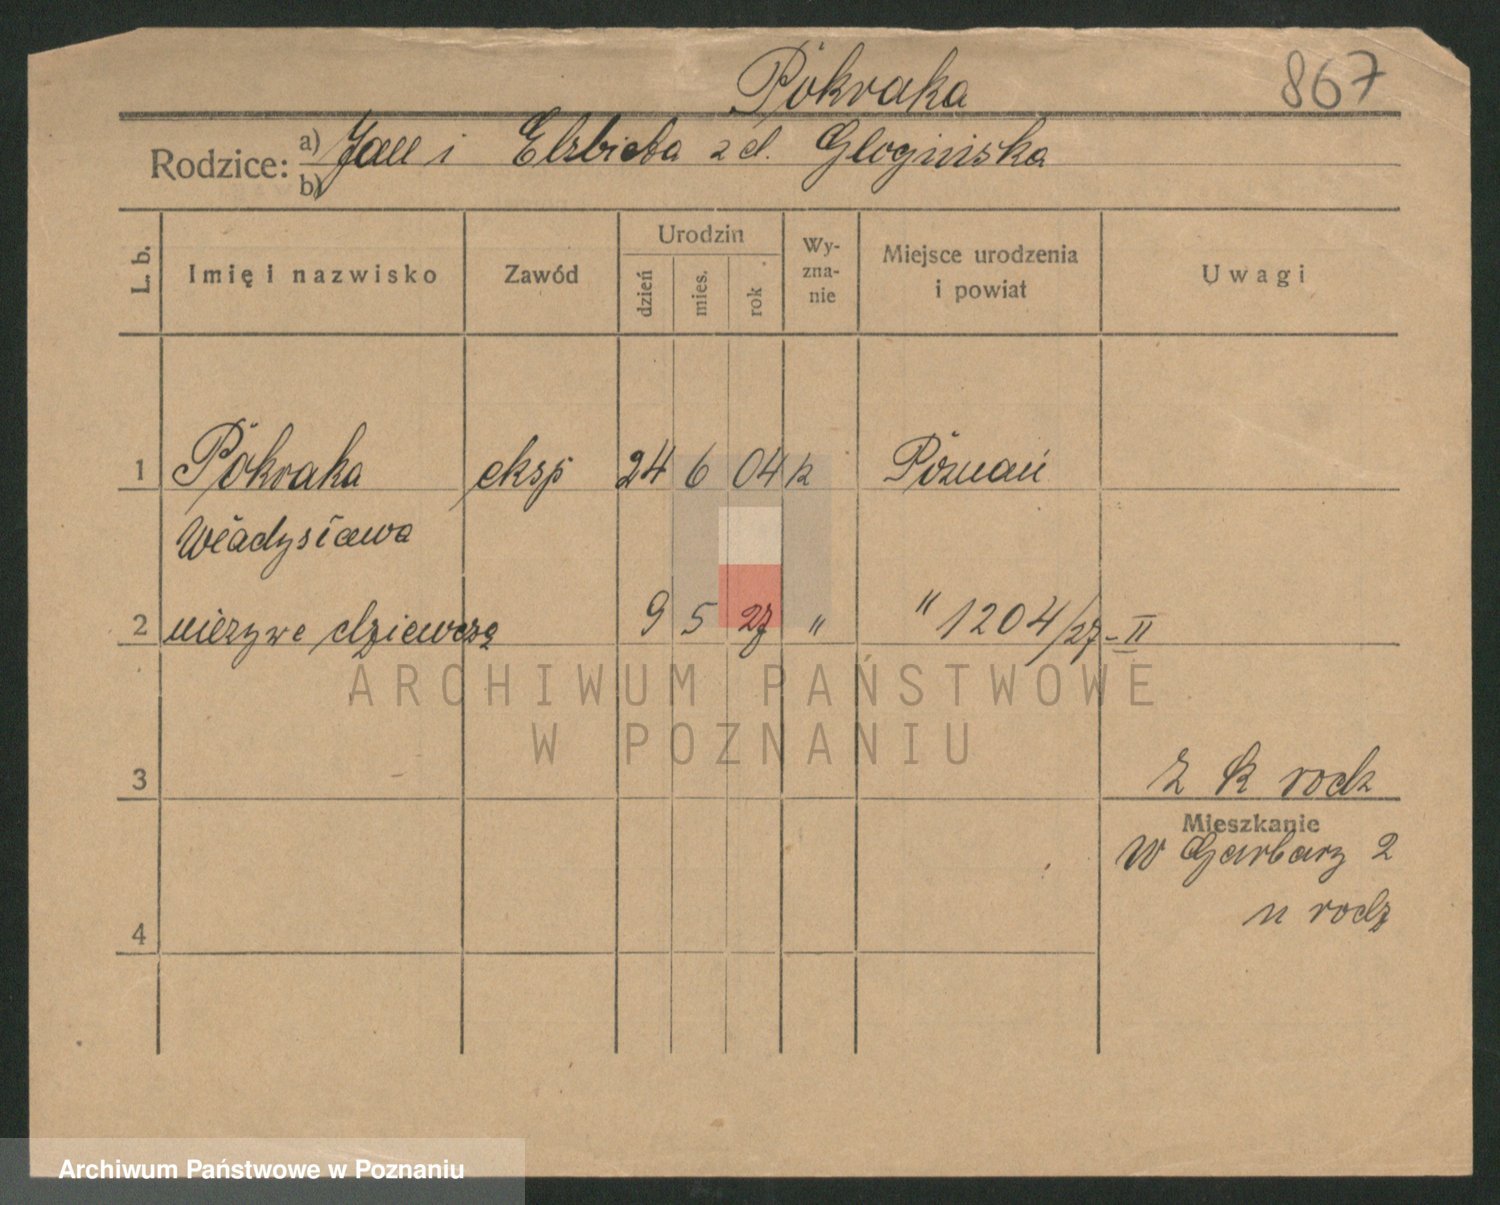 Pokraka
867
Rodzice: a) Jan i Elzbieta z d. Głogińska
b)
L. b. Imię i nazwisko Zawód Urodzin dzień mies. rok Wyznanie Miejsce urodzenia i powiat Uwagi
1 Pokraka eksp 24 6 04 k Poznań
Władysława
2 nieżywe dziewczę 9 5 27 " " 1204/27-II
ARCHIWUM PAŃSTWOWE
W POZNANIU
3 Z K rodz
Mieszkanie
W Garbarz 2
u rodz
4
Archiwum Państwowe w Poznaniu